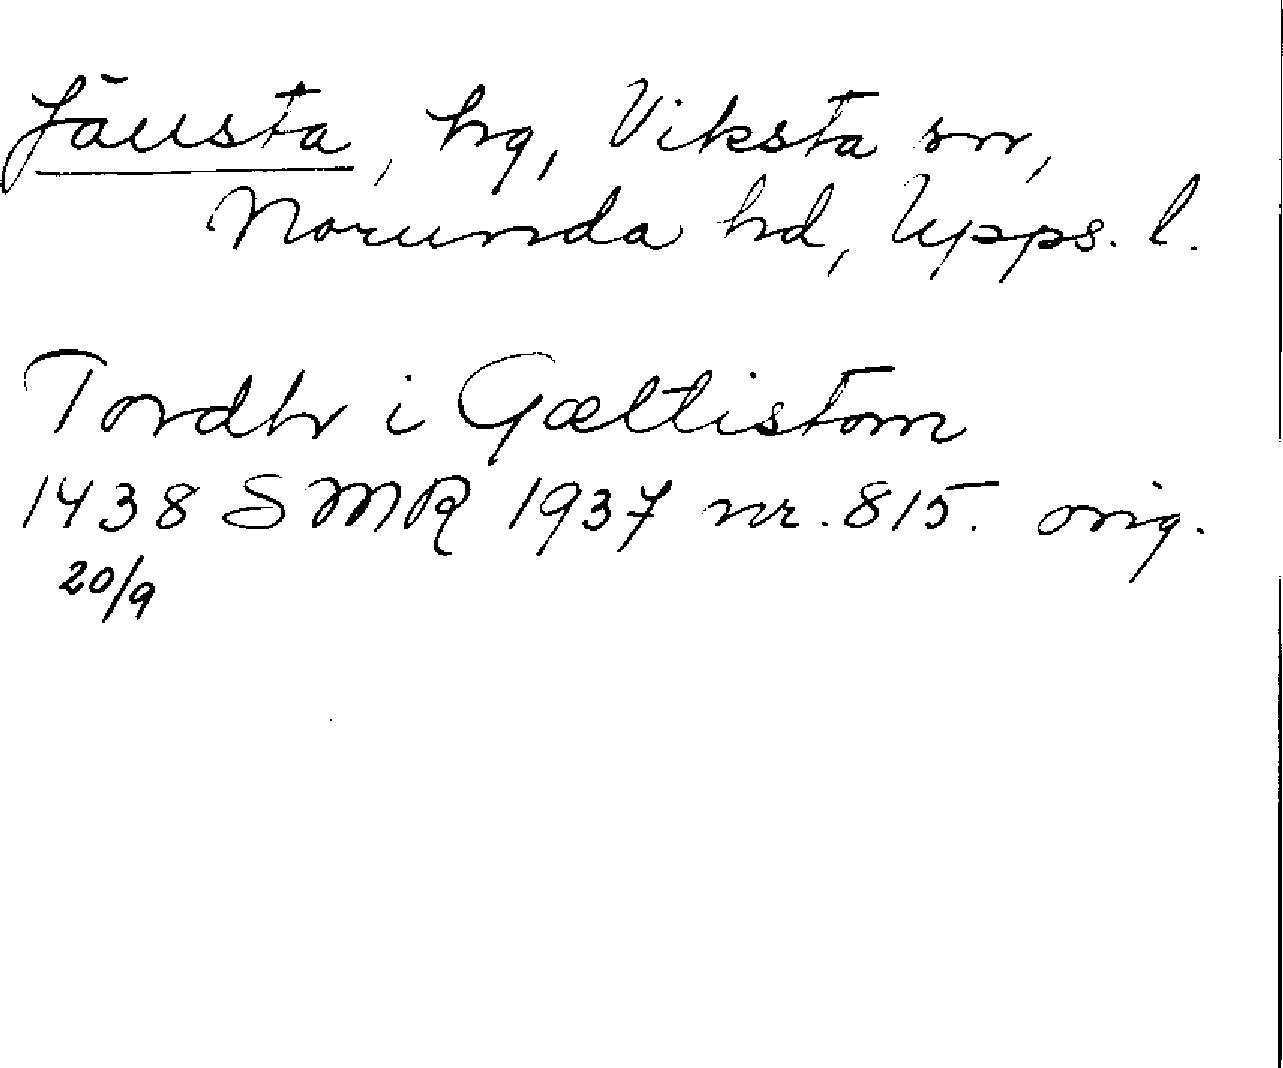 Jäusta, hg, Viksta sn,
Norunda hd, Upps. l.
Tordhr i Gæltistom
1438 SMR 1937 nr. 815. orig.
20/9